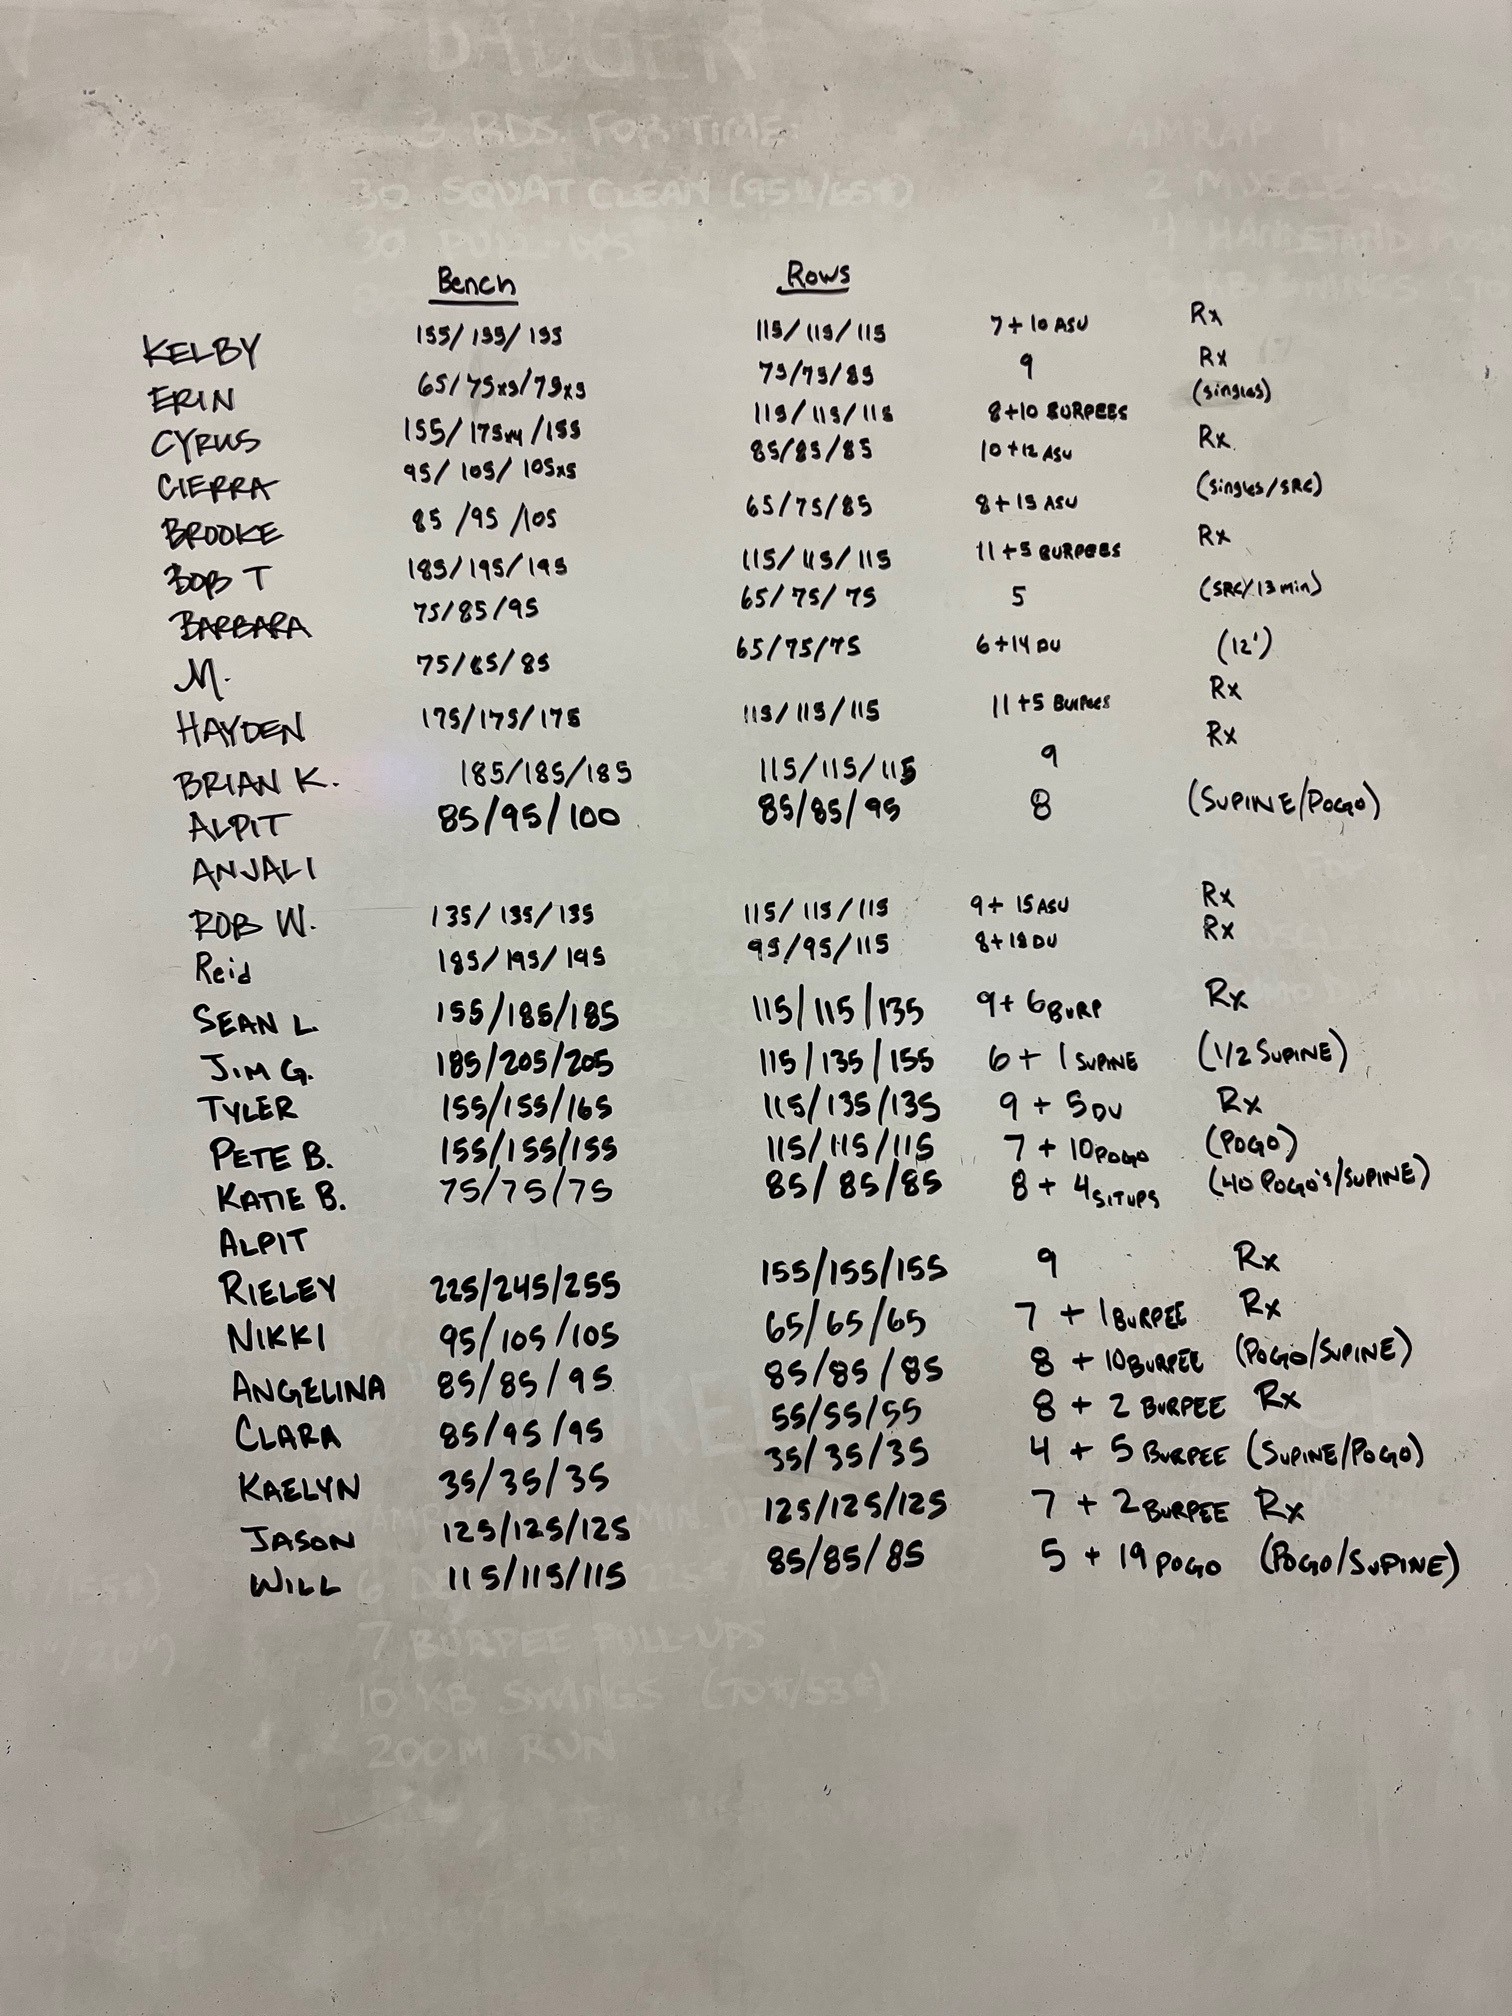 BADGER
3 RDS. FOR TIME:
AMRAP IN 20
30 SQUAT CLEAN (95#/65#)
2 MUSCLE-UPS
30 PULL-UPS
4 HANDSTAND
KB SWINGS
Bench Rows
KELBY 155/155/155 115/115/115 7+10 ASU Rx
ERIN 65/75x5/75x5 75/75/85 9 Rx (singles)
CYRUS 155/175x4/155 115/115/115 8+10 BURPEES
CIERRA 95/105/105x5 85/85/85 10+12 ASU Rx
BROOKE 85/95/105 65/75/85 8+15 ASU (singles/SRC)
BOB T 185/195/195 115/115/115 11+5 BURPEES Rx
BARBARA 75/85/95 65/75/75 5 (SRC/13min)
M. 75/85/85 65/75/75 6+14 DU (12')
HAYDEN 175/175/175 115/115/115 11+5 Burpees Rx
BRIAN K. 185/185/185 115/115/115 9 Rx
ALPIT 85/95/100 85/85/95 8 (SUPINE/POGO)
ANJALI
ROB W. 135/135/135 115/115/115 9+15 ASU Rx
Reid 185/195/195 95/95/115 8+18 DU Rx
SEAN L. 155/185/185 115/115/135 9+6 BURP Rx
JIM G. 185/205/205 115/135/155 6+1 SUPINE (1/2 SUPINE)
TYLER 155/155/165 115/135/135 9+5 DU Rx
PETE B. 155/155/155 115/115/115 7+10 POGO (POGO)
KATIE B. 75/75/75 85/85/85 8+4 SITUPS (40 POGO'S/SUPINE)
ALPIT
RIELEY 225/245/255 155/155/155 9 Rx
NIKKI 95/105/105 65/65/65 7+1 BURPEE Rx
ANGELINA 85/85/95 85/85/85 8+10 BURPEE (POGO/SUPINE)
CLARA 85/95/95 55/55/55 8+2 BURPEE Rx
KAELYN 35/35/35 35/35/35 4+5 BURPEE (SUPINE/POGO)
JASON 125/125/125 125/125/125 7+2 BURPEE Rx
WILL 115/115/115 85/85/85 5+19 POGO (POGO/SUPINE)
7 BURPEE PULL-UPS
10 KB SWINGS (70#/53#)
200M RUN